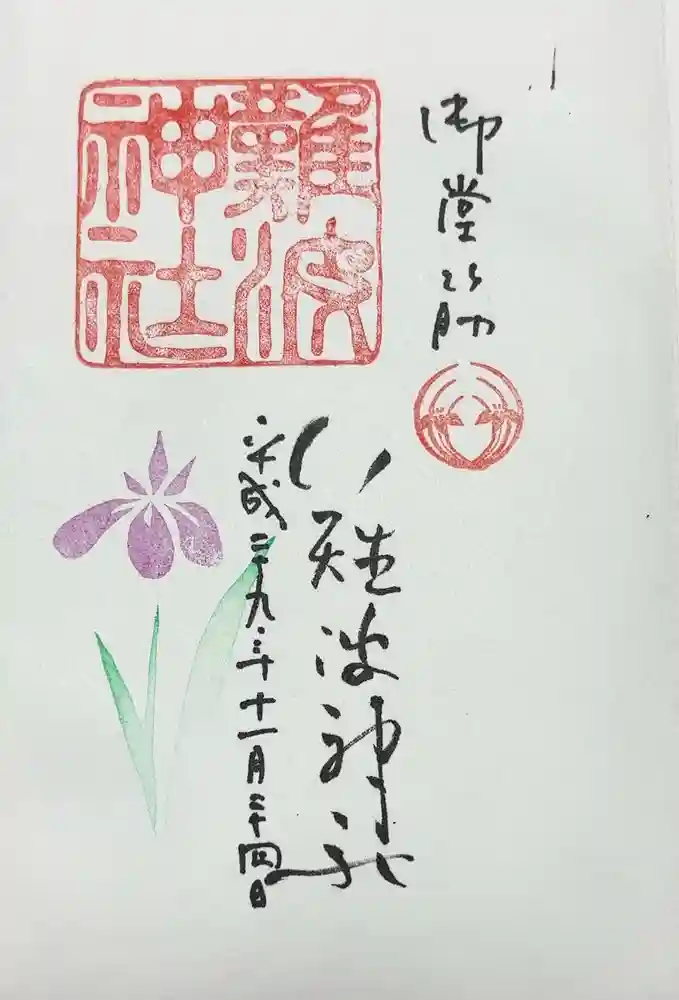 御堂筋
難波
神社
難波神社
平成二九年十一月二十四日